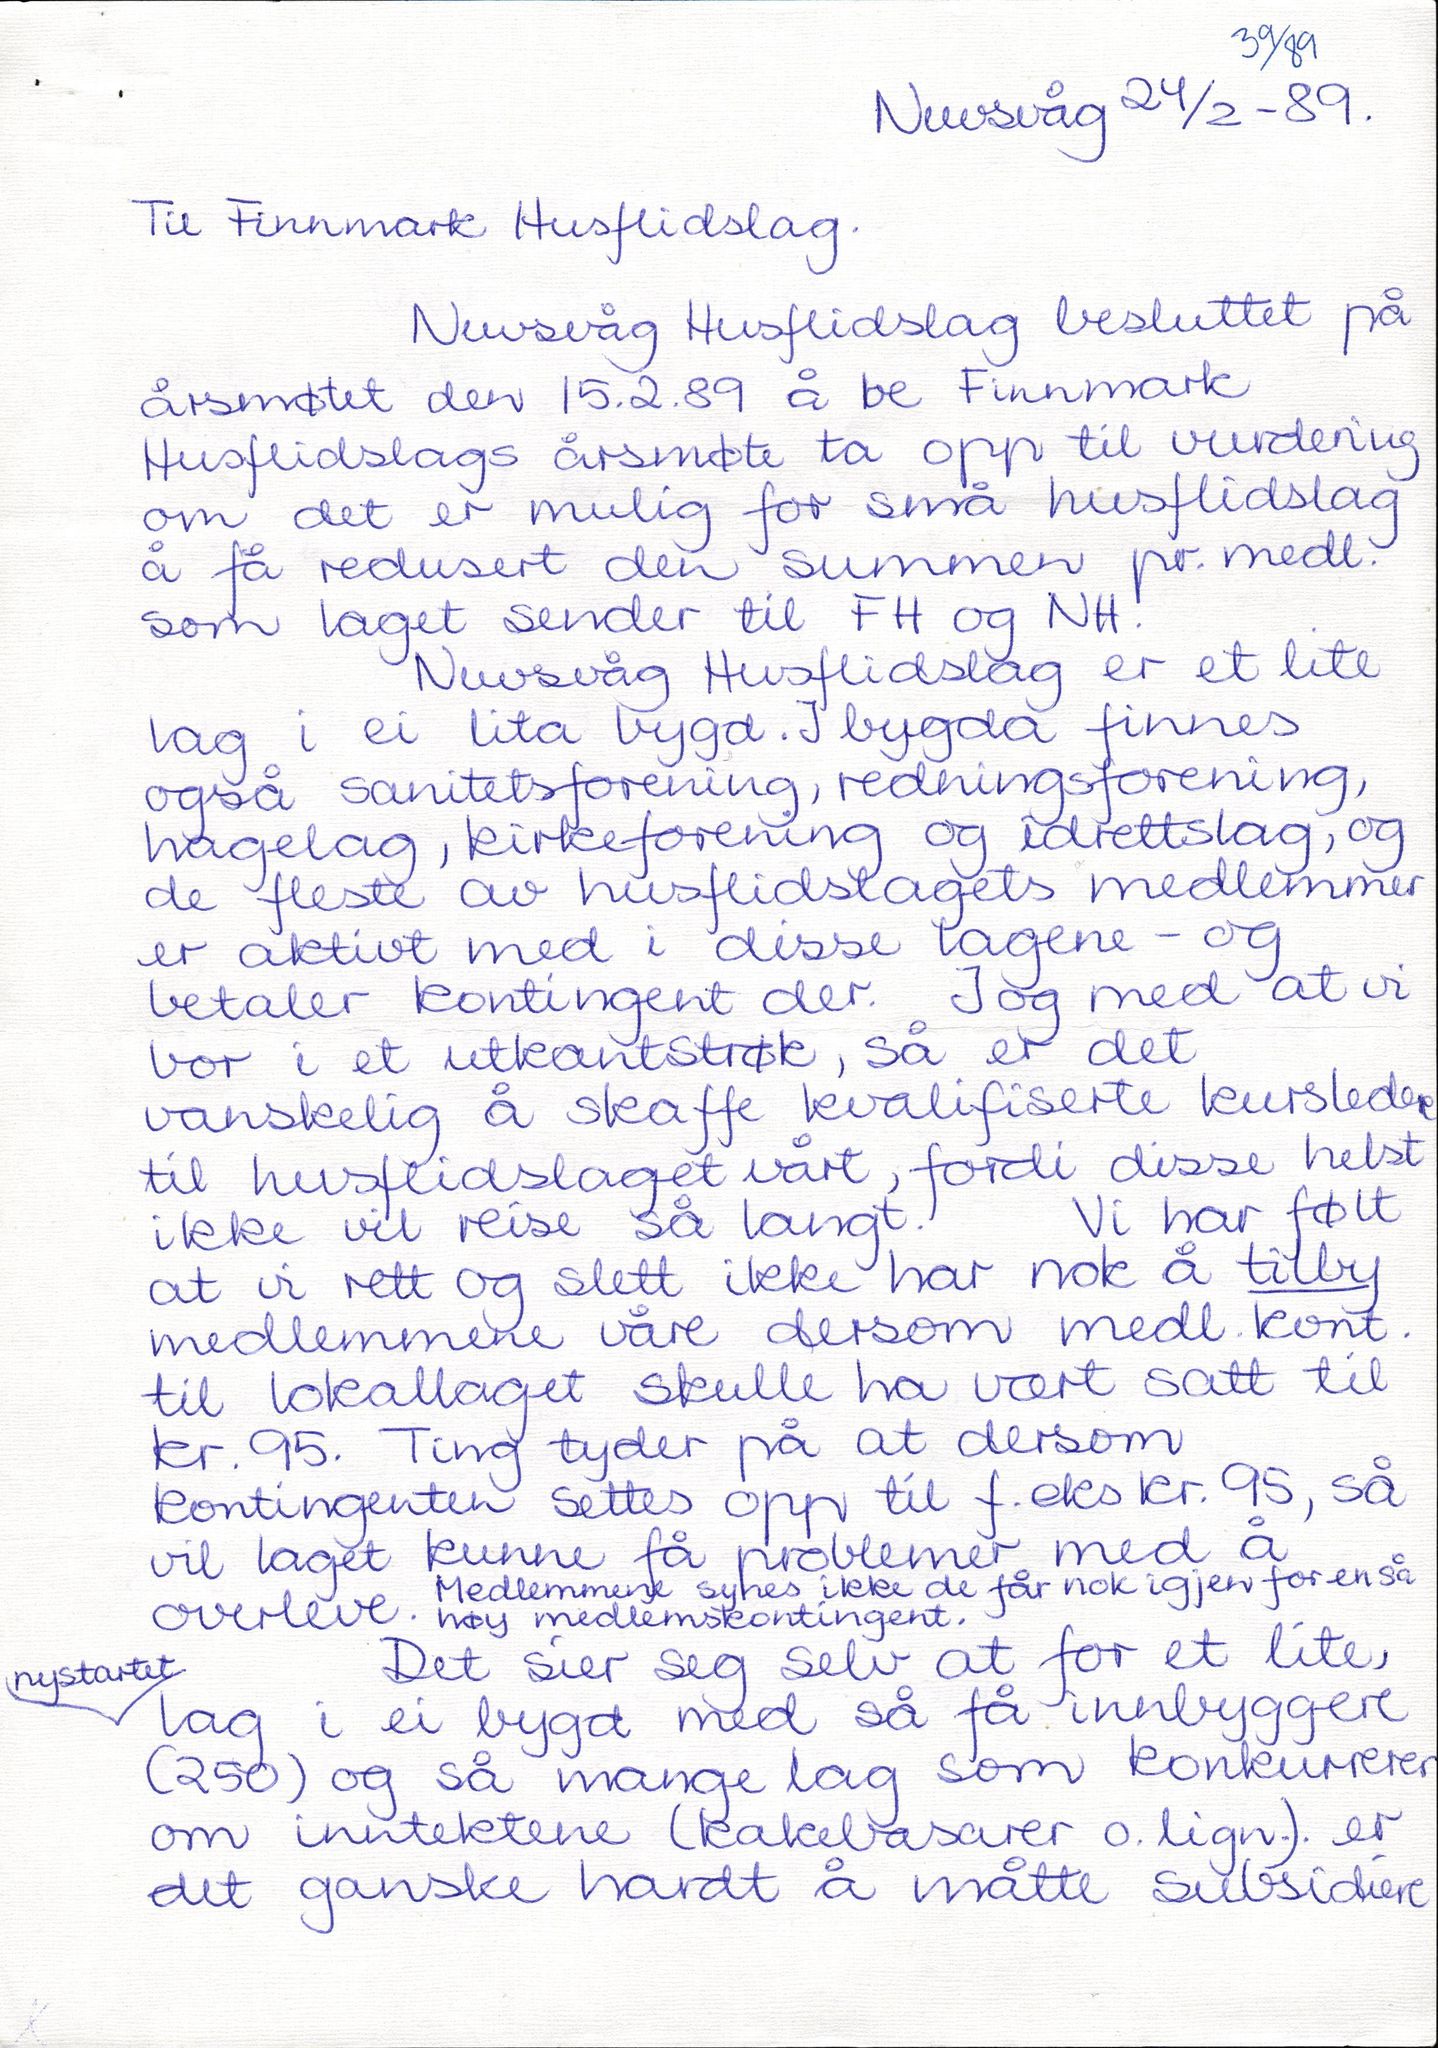 39/89
Nuvsvåg 24/2-89.
Til Finnmark Husflidslag.
Nuvsvåg Husflidslag besluttet på
årsmøtet den 15.2.89 å be Finnmark
Husflidslags årsmøte ta opp til vurdering
om det er mulig for små husflidslag
å få redusert den summen pr. medl.
som laget sender til FH og NH.
Nuvsvåg Husflidslag er et lite
lag i ei lita bygd. I bygda finnes
også sanitetsforening, redningsforening,
hagelag, kirkeforening og idrettslag, og
de fleste av husflidslagets medlemmer
er aktivt med i disse lagene - og
betaler kontingent der. I og med at vi
bor i et utkantstrøk, så er det
vanskelig å skaffe kvalifiserte kursledere
til husflidslaget vårt, fordi disse helst
ikke vil reise så langt. Vi har følt
at vi rett og slett ikke har nok å tilby
medlemmene våre dersom medl. kont.
til lokallaget skulle ha vært satt til
kr. 95. Ting tyder på at dersom
kontingenten settes opp til f. eks kr. 95, så
vil laget kunne få problemer med å
overleve. Medlemmene synes ikke de får nok igjen for en så
høy medlemskontingent.
Det sier seg selv at for et lite,
nystartet
lag i ei bygd med så få innbyggere
(250) og så mange lag som konkurrerer
om inntektene (kakebasarer o. lign.). er
det ganske hardt å måtte subsidiere